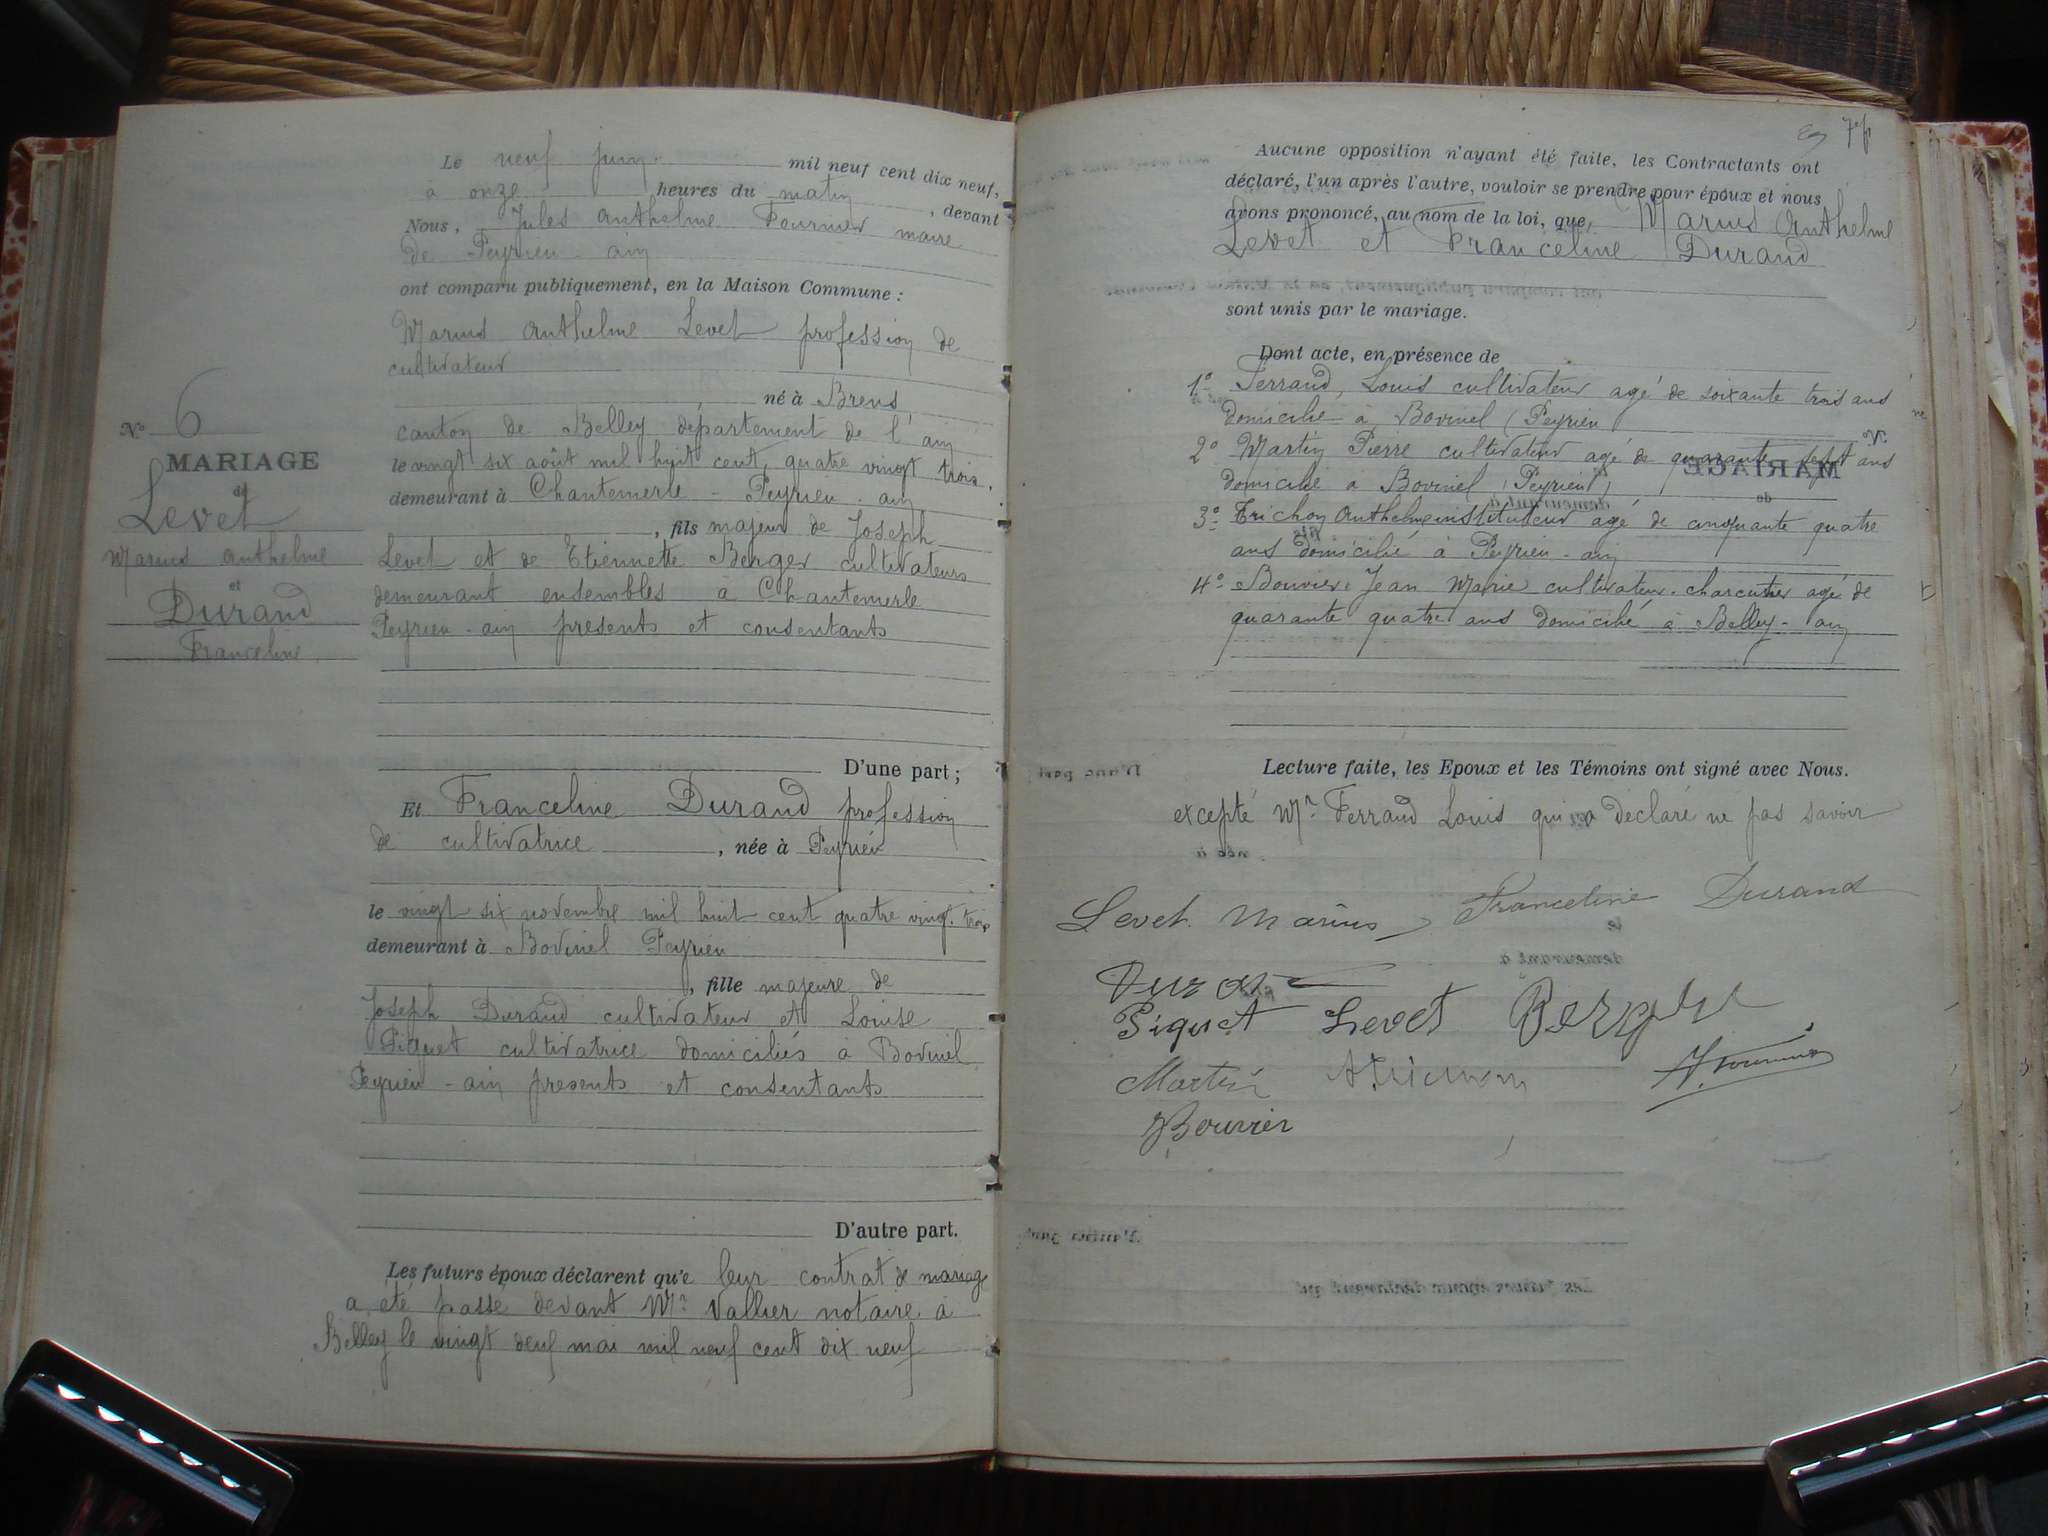 Le neuf juin mil neuf cent dix neuf,
à onze heures du matin, devant
Nous, Jules Anthelme Fournier maire
de Peyrieu - ain
ont comparu publiquement, en la Maison Commune :
Marius Anthelme Levet profession de
cultivateur
né à Brens
canton de Belley département de l'ain
le vingt six août mil huit cent quatre vingt trois.
demeurant à Chantemerle - Peyrieu - ain
, fils majeur de Joseph
Levet et de Etiennette Berger cultivateurs
demeurant ensembles à Chantemerle
Peyrieu - ain présents et consentants
No 6
MARIAGE
de
Levet
Marius Anthelme
et
Durand
Franceline
D'une part ;
Et Franceline Durand profession
de cultivatrice, née à Peyrieu
le vingt six novembre mil huit cent quatre vingt trois
demeurant à Bovinel Peyrieu
, fille majeure de
Joseph Durand cultivateur et Louise
Piquet cultivatrice domiciliés à Bovinel
Peyrieu - ain présents et consentants
D'autre part.
Les futurs époux déclarent qu'e leur contrat de mariage
a été passé devant Mr Vallier notaire à
Belley le vingt neuf mai mil neuf cent dix neuf
Aucune opposition n'ayant été faite, les Contractants ont
déclaré, l'un après l'autre, vouloir se prendre pour époux et nous
avons prononcé, au nom de la loi, que, Marius Anthelme
Levet et Franceline Durand
sont unis par le mariage.
Dont acte, en présence de
1º Ferrand, Louis cultivateur agé de soixante trois ans
domicilié à Bovinel (Peyrieu)
2º Martin Pierre cultivateur agé de quarante sept ans
domicilié à Bovinel (Peyrieu)
3º Trichon Anthelme instituteur agé de cinquante quatre
ans domicilié à Peyrieu - ain
4º Bouvier Jean Marie cultivateur - charcutier agé de
quarante quatre ans domicilié à Belley - ain
Lecture faite, les Epoux et les Témoins ont signé avec Nous.
excepté Mr Ferrand Louis qui a déclaré ne pas savoir
Levet Marius Franceline Durand
Durand
Piquet Levet Berger
Martin ATrichon JFournier
Bouvier